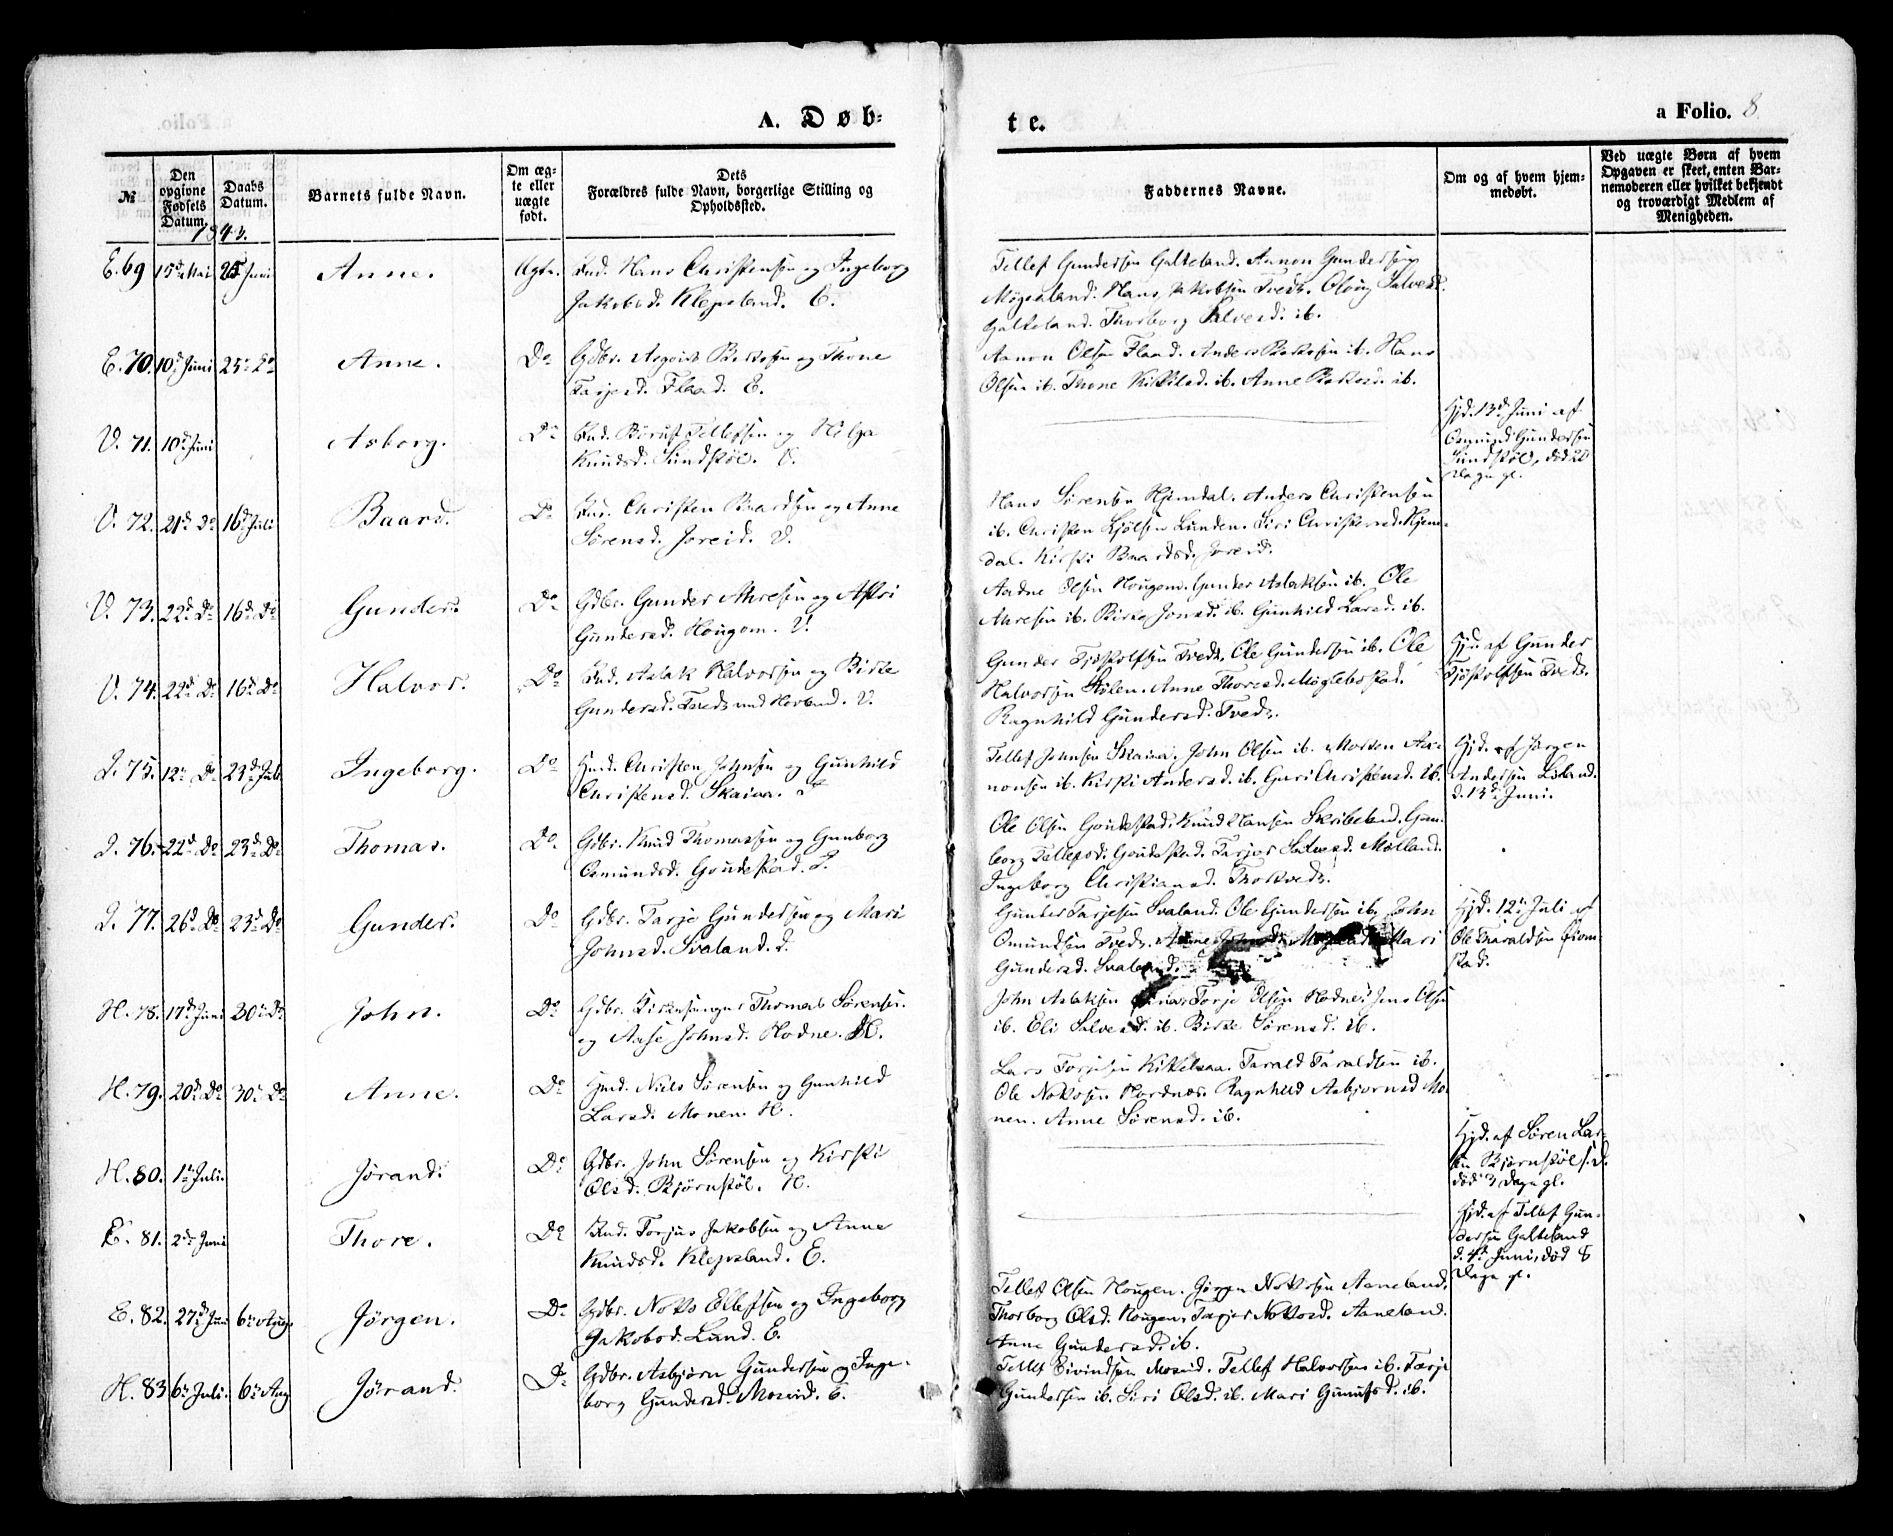 A. Døb-
te.
a Folio. 8
№
Den opgivne Fødsels Datum.
Daabs Datum.
Barnets fulde Navn.
Om æg-
te eller
uægte
født.
Dets
Forældres fulde Navn, borgerlige Stilling og
Opholdssted.
Faddernes Navne.
Om og af hvem hjem-
medøbt.
Ved uægte Børn af hvem
Opgaven er skeet, enten Bar-
nemoderen eller hvilket bekjendt
og troværdigt Medlem af
Menigheden.
E. 69 15d Mai 25 Juni Anne. Ægte. Ind. Hans Christensen og Ingeborg
Jakobsd. Klepsland. E.
Tellef Gundersen Galteland. Aanon Gundersen
Møgesland. Hans Jakobsen Tvedt. Olaug Salvesd.
Galteland. Thorborg Salvesd. ib.
E. 70. 10d Juni 25 Do Anne. Do Gdbr. Asgrim Berthosen og Thone
Tarjesd. Flaad. E.
Aanon Olsen Flaad. Anders ib. Hans
Olsen ib. Thone Kittilsd. ib. Anne ib.
V. 71. 10d Juni Asborg. Do Ind. Tellefsen og Helga
Knudsd. Sundstøl. V.
Hjd. 13d Juni af
Osmund Gundersen
Sundstøl, død 20
Dage gl.
V. 72. 21d Do 16d Juli Baard. Do Christen Baardsen og Anne
Sørensd. Joreid. V.
Hans Sørensen Hjemdal. Anders Christensen
ib. Christen Kjølsen Lunden. Siri Christensd. Hjem-
dal. Kirsti Baardsd. Joreid.
V. 73. 22d Do 16d Do Gunder. Do Gdbr. Gunder Ahresen og Astri
Gundersd. Hougom. V.
Aadne Olsen Hougom. Gunder Aslaksen ib. Ole
Ahresen ib. Birte Jonsd. ib. Gunhild Larsd. ib.
V. 74. 22d Do 16d Do Halvor. Do Ind. Aslak Halvorsen og Birte
Gundersd. Tvedt und Hovland. V.
Gunder Tjøstolfsen Tvedt. Ole Gundersen ib. Ole
Halvorsen Stølen. Anne Thoresd. Møglebostad.
Ragnhild Gundersd. Tvedt.
Hjd. af Gunder
Tjøstolfsen Tvedt.
I. 75. 12 Do 23d Juli Ingeborg. Do Hmd. Christen Johnsen og Gunhild
Christensd. Skaiaa. I
Tellef Johnsen Skaiaa. John Olsen ib. Morten Aa-
nonsen ib. Kirsti Andersd. ib. Guri Christensd. ib.
Hjd. af Jørgen
Andersen Lisland.
d. 13d Juni.
I. 76. 22d Do 23d Do Thomas. Do Gdbr. Knud Thomassen og Gunborg
Osmundsd. Goudestad. I.
Ole Olsen Goudestad. Knud Hansen Skribeland. Gun-
borg Tellefsd. Goudestad. Tarjer Salvesd. Mølland.
Ingeborg Christiansd. Thortvedt.
I. 77. 26d Do 23d Do Gunder. Do Gdbr. Tarje Gundersen og Mari
Johnsd. Svaland. I.
Gunder Tarjesen Svaland. Ole Gundersen ib. John
Omundsen Tvedt. Anne Johnsd. Mari
Gundersd. Svaland.
Hjd. 12te Juli af
Ole Tharaldsen
stad.
H. 78. 17d Juni 30 Do John. Do Gdbr. Kirkesanger Thomas Sørensen.
og Aase Johnsd. Hodne. H.
John Aslaksen Torje Olsen Hodne. Jens Olsen
ib. Eli Salvesd. ib. Birte Sørensd. ib.
H. 79. 20d Do 30 Do Anne. Do Hmd. Niels Sørensen og Gunhild
Larsd. Monen. H.
Lars Torjesen Kittelsaa. Tarald Taraldsen ib.
Ole Nottosen Hordnes. Ragnhild Asbjørnsd. Mo-
nen. Anne Sørensd. ib.
H. 80. 1 Juli. Jørand. Do Gdbr. John Sørensen og Kirsti
Olsd. Bjørnstøl. H.
Hjd. af Søren Lar-
sen Bjørnstøl s.d.
død 3 Dage gl.
E. 81. 2 Juni Thore. Do Ind. Torjus Jakobsen og Anne
Knudsd. Klepsland. E.
Hjd. af Tellef Gun-
dersen Galteland
d. 4d Juni, død 8
Dage gl.
E. 82. 27d Juni 6 Aug. Jørgen. Do Gdbr. Notto Ellefsen og Ingeborg
Jakobsd. Lund. E.
Tellef Olsen Hougen. Jørgen Nottosen Aaneland.
Thorborg Olsd. Hougen. Tarjer Nottosd. Aaneland.
Anne Gundersd. ib.
H. 83 6 Juli. 6 Aug Jørand. Do Gdbr. Asbjørn Gundersen og Inge-
borg Gundersd. Mosvid. E.
Tellef Eivindsen Mosvid. Tellef Halvorsen ib. Tarje
Gundersen ib. Siri Olsd. ib. Mari Gunufsd. ib.